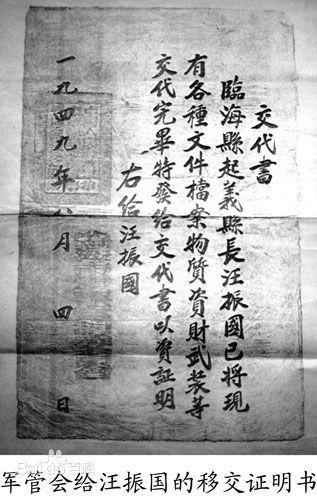 交代書
臨海縣起義縣長汪振國已將現
有各種文件檔案物質資財武裝等
交代完畢特發給交代書以資証明
右給汪振國
一九四九年八月四日
Bai百科
军管会给汪振国的移交证明书